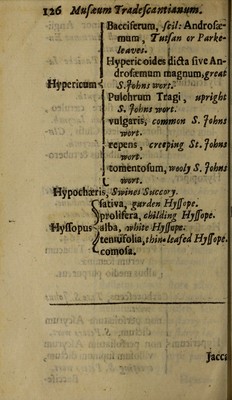 126 Musæum Tradescantianum.
Bacciferum, seil: Androsæ-
mum, Tutsan or Parke-
leaves.
Hyperic oides dicta sive An-
drosæmum magnum, great
Hypericum S. Johns wort.
Pulchrum Tragi, upright
S. Johns wort.
vulgaris, common S. Johns
wort.
repens, creeping St. Johns
wort.
tomentosum, wooly S. Johns
wort.
Hypochæris, Swines Succory.
sativa, garden Hyssope.
prolifera, childing Hyssope.
Hyssopus alba, white Hyssope.
tenuifolia, thin leafed Hyssope.
comosa.
Jacea